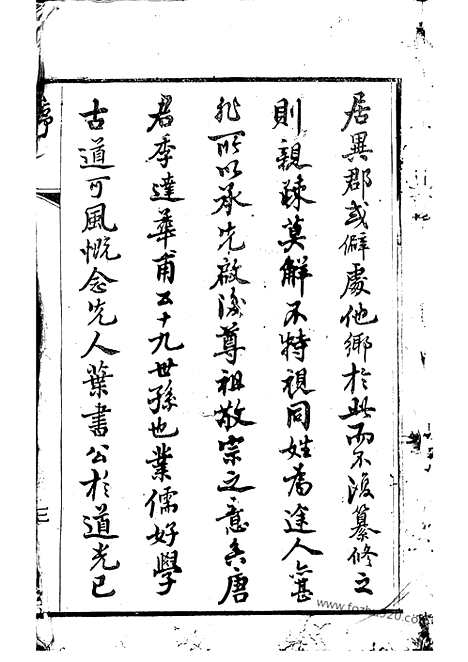 居異郡或僻處他鄉於此而不復纂修之
則親疎莫解不特視同姓為途人甚
非所以承先啟後尊祖敬宗之意矣唐
君季達華甫五十九世孫也業儒好學
古道可風慨念先人葉書公於道光已
序
三